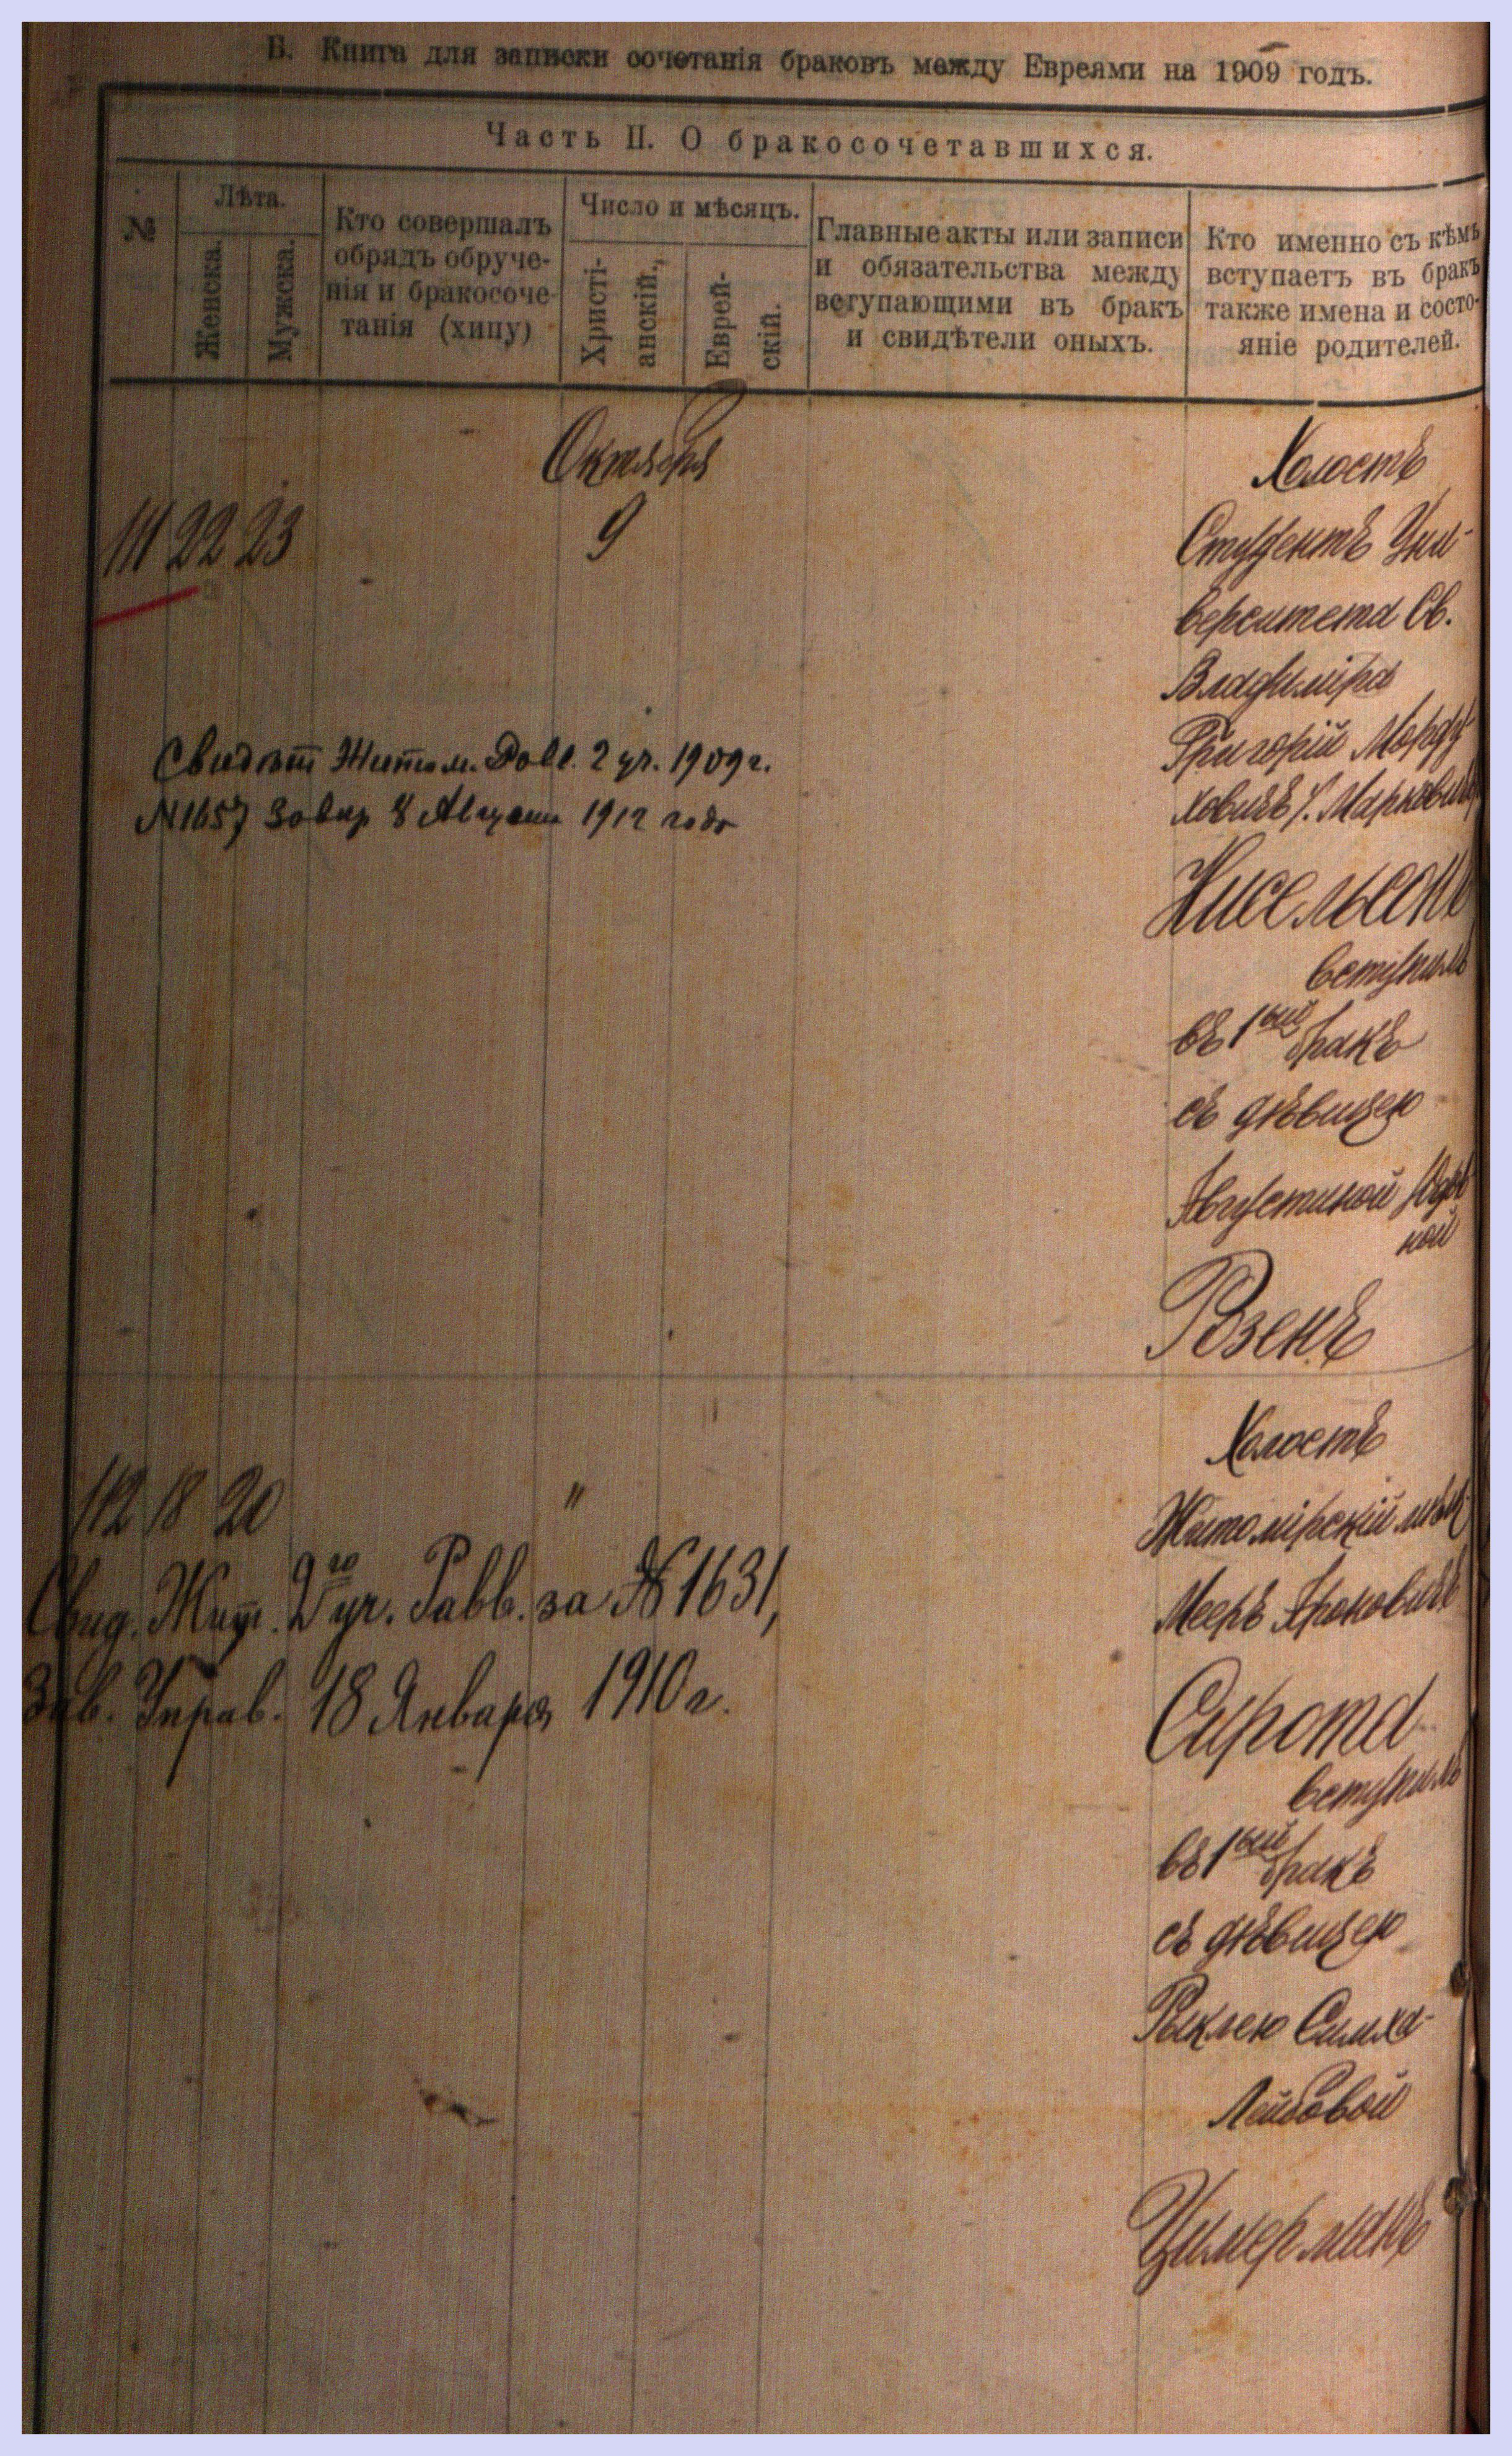 В. Книга для записки сочетанія браковъ между Евреями на 1909 годъ.
Часть II. О бракосочетавшихся.
№
Лѣта.
Женска.
Мужска.
Кто совершалъ
обрядъ обруче-
нія и бракосоче-
танія (хипу)
Число и мѣсяцъ.
Христі-
анскій.,
Еврей-
скій.
Главные акты или записи
и обязательства между
вступающими въ бракъ
и свидѣтели оныхъ.
Кто именно съ кѣмъ
вступаетъ въ бракъ
также имена и состо-
яніе родителей.
Октября
111 22 23 9
Холостъ
Студентъ Уни-
верситета Св.
Владиміра
Григорій Морду-
ховичъ Марковичъ
Нисельсонъ
вступилъ
въ 1ый бракъ
съ дѣвицею
Августиной
ной
Розенъ
Свидѣт Житом. 2 уч. 1909 г.
N 1657 8 Августа 1912 года
112 18 20 "
Свид. Жит. 2го уч. Равв. за № 1631,
Зав. Управ. 18 Января 1910 г.
Холостъ
Житомірскій мѣщ.
Мееръ Ароновичъ
Сирота
вступилъ
въ 1ый бракъ
съ дѣвицею
Рыклею Симха-
Лейбовой
Цимерманъ